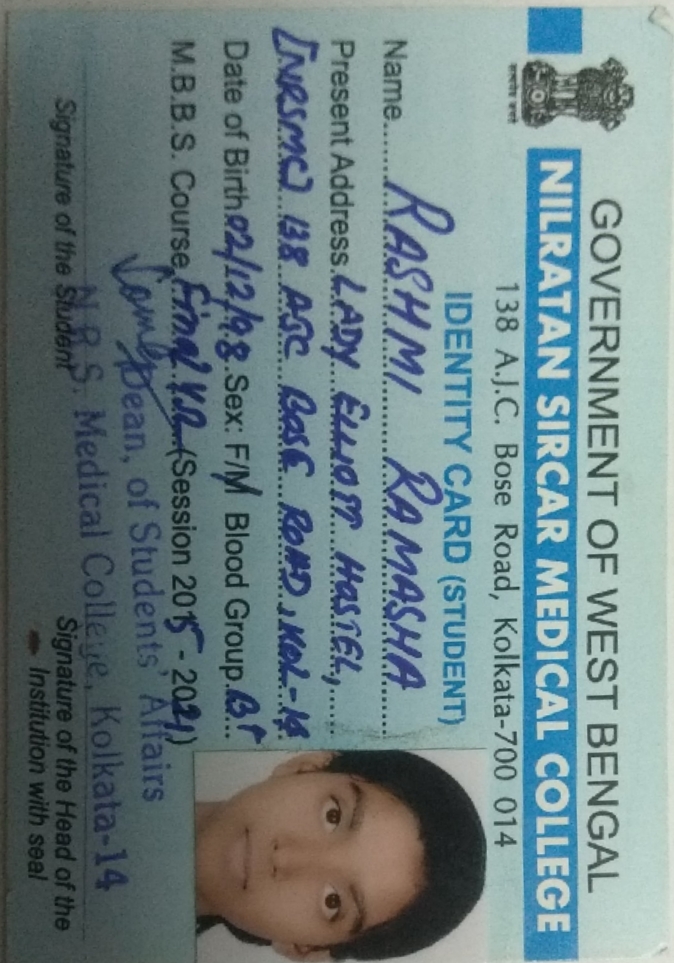 GOVERNMENT OF WEST BENGAL
NILRATAN SIRCAR MEDICAL COLLEGE
138 A.J.C. Bose Road, Kolkata-700 014
सत्यमेव जयते
IDENTITY CARD (STUDENT)
Name......RASHMI RAMASHA
Present Address.LADY ELLIOTT HOSTEL,
[NRSMC] 138 AJC BOSE ROAD, KOL-14
Date of Birth 02/12/98 Sex: F/M Blood Group B+
M.B.B.S. Course Final YR (Session 2015 - 2021)
Dean, of Students' Affairs
N.R.S. Medical College, Kolkata-14
Signature of the Student
Signature of the Head of the
Institution with seal